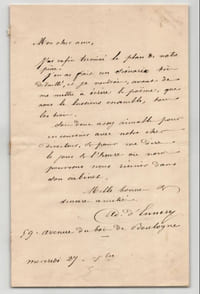 Mon cher ami,
J'ai enfin terminé le plan de notre
pièce.
J'en ai fait un scénario très
détaillé, et je voudrais, avant de
me mettre à écrire le poème, que
nous le lussions ensemble, bien
Soyez donc assez aimable pour
vous entendre avec notre cher
directeur, et pour me dire
le jour & l'heure où nous
pourrons nous réunir dans
son cabinet.
Mille bonnes &
sincères amitiés
Ad. d'Ennery
59. avenue du bois de Boulogne
mercredi 27.